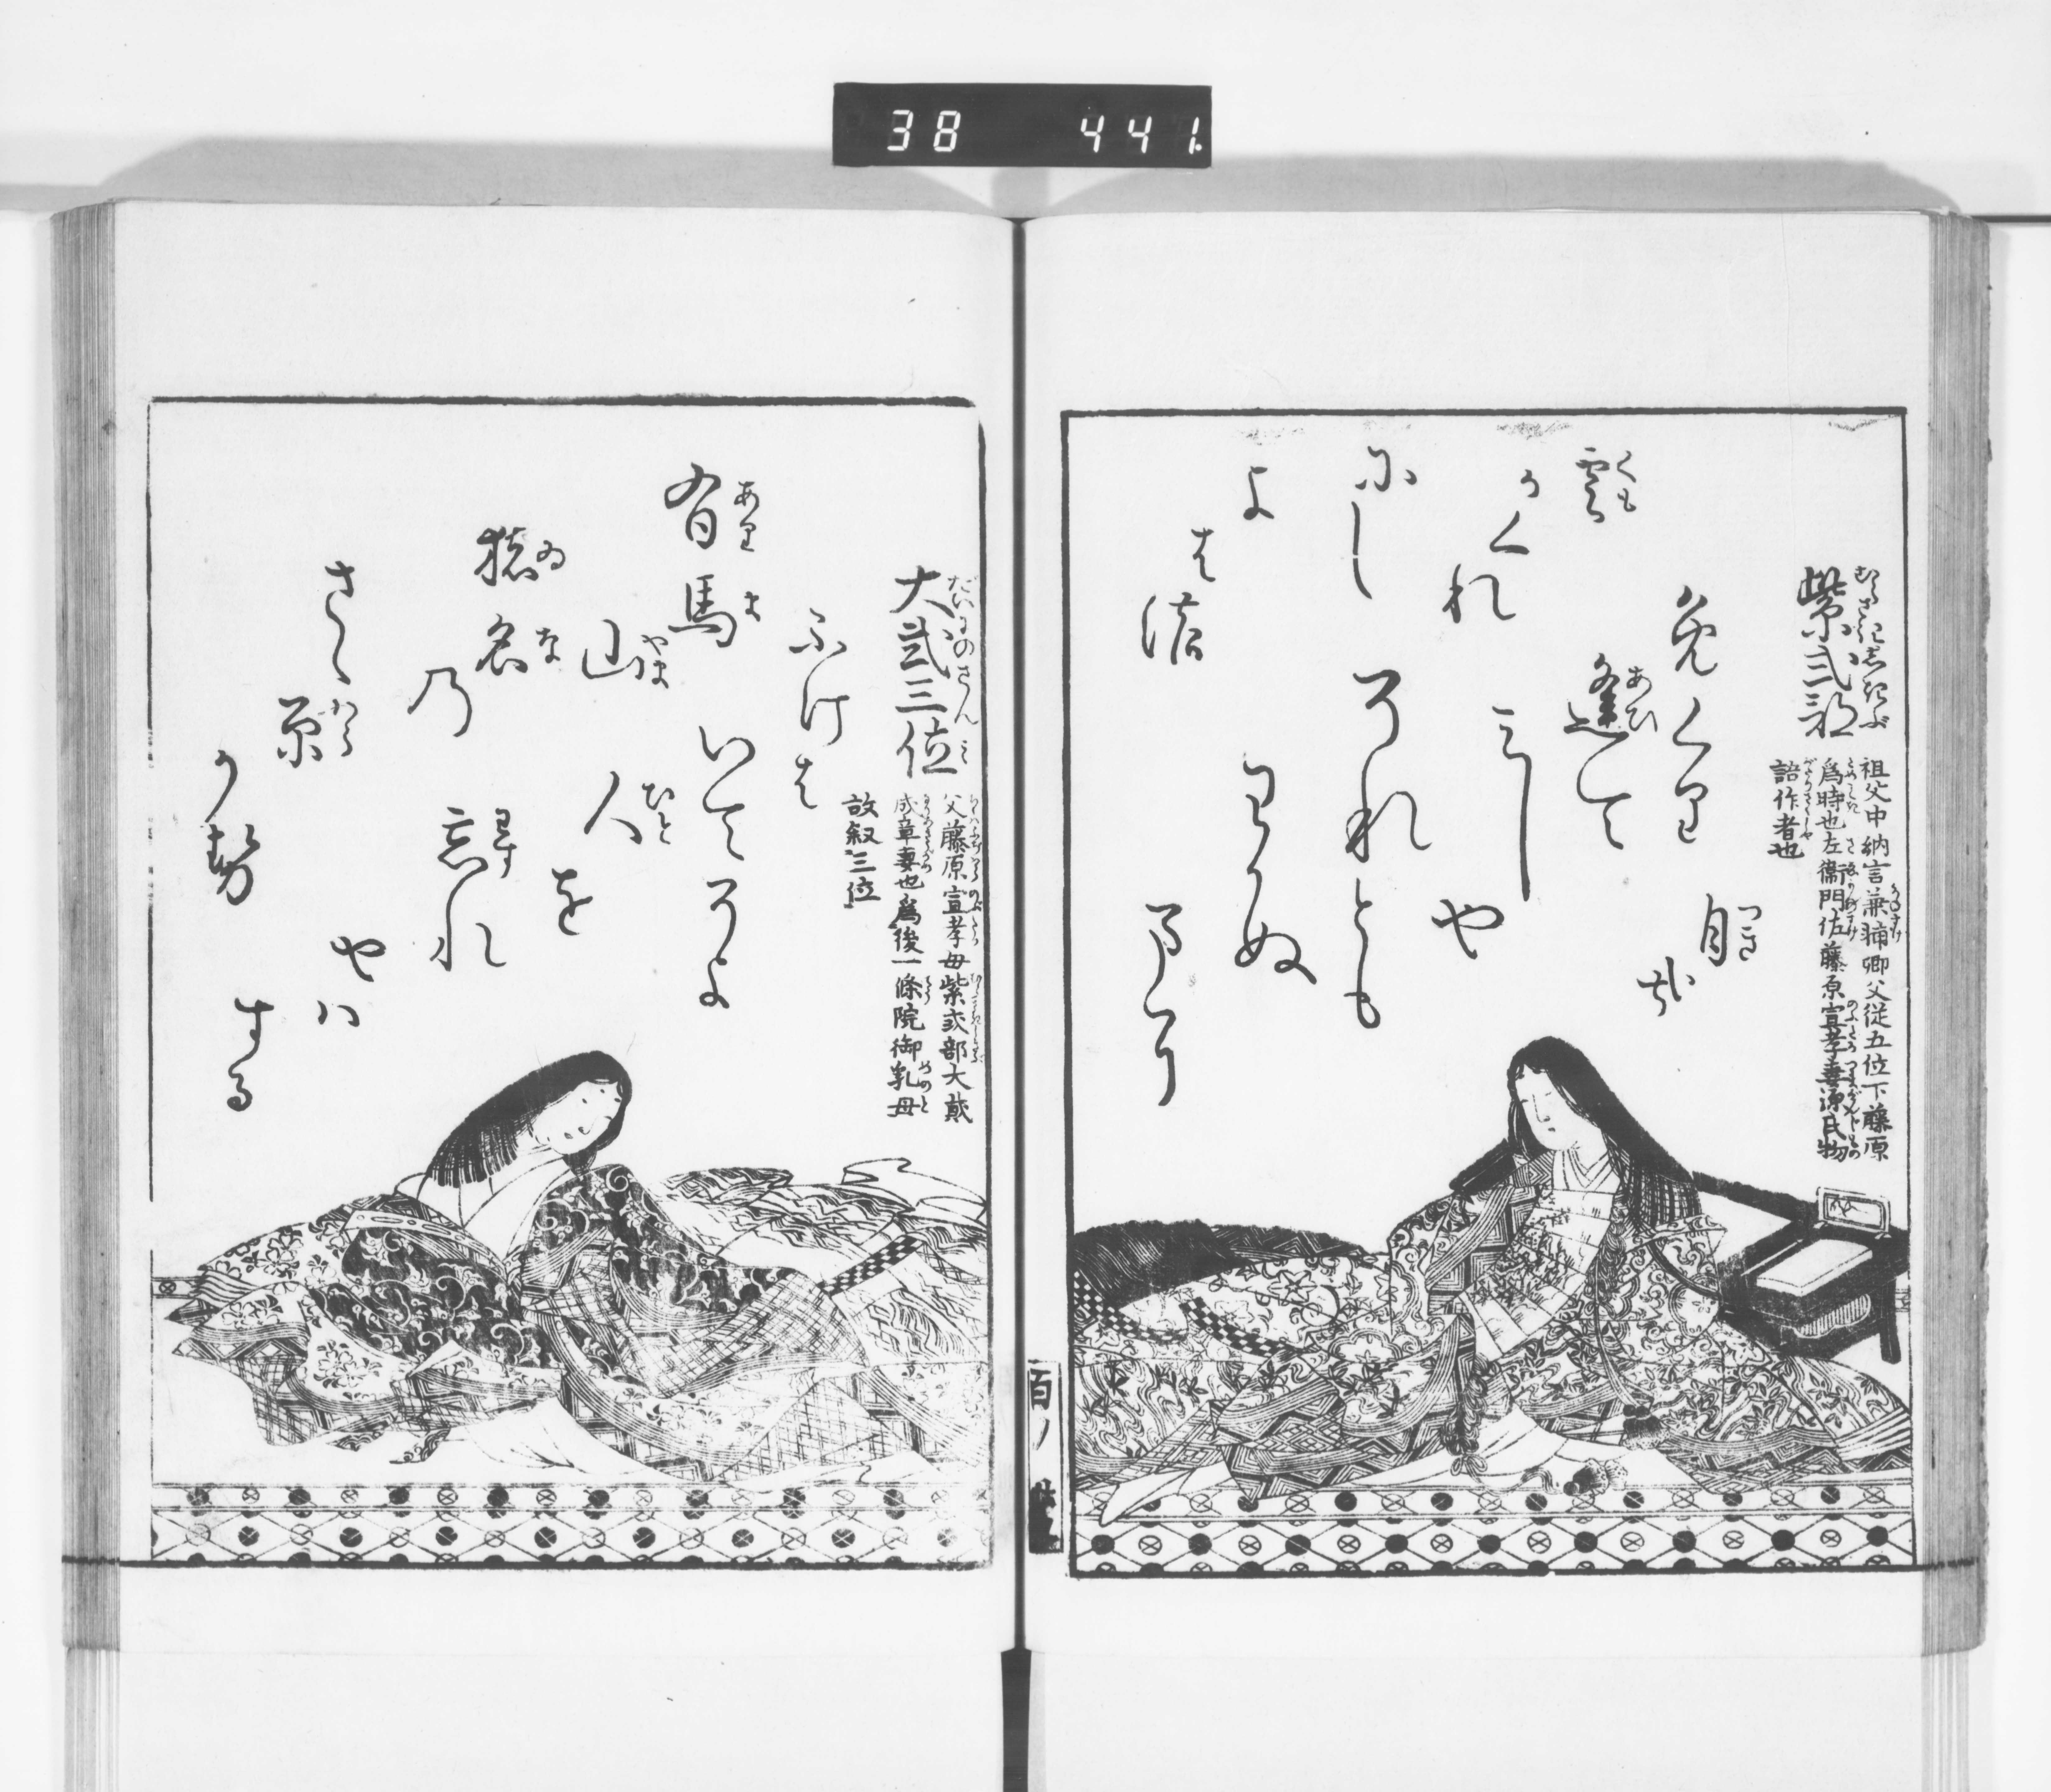 38 441.
紫式部
祖父中納言兼輔卿父従五位下藤原
爲時也左衞門佐藤原宣孝妻源氏物
語作者也
免くり
逢て
みし
や
それとも
わかぬ
まに
雲
かくれ
にし
よ
は
能
月
哉
大貳三位
父藤原宣孝母紫式部大貮
成章妻也爲後一條院御乳母
故叙三位
有馬
山
猪名
乃
さゝ
原
か勢
ふけは
いてそよ
人
を
忘れ
やハ
する
百ノ